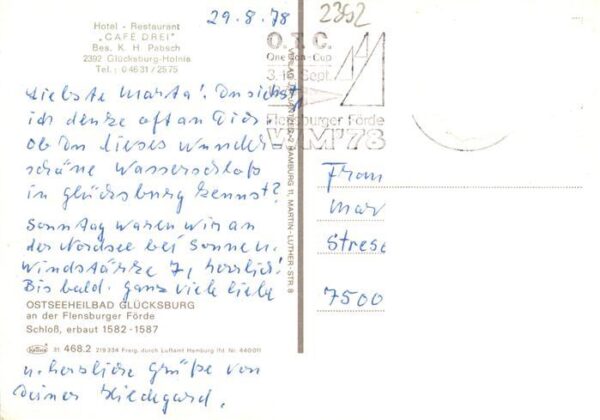 29.8.78
2392
Hotel - Restaurant
"CAFÉ DREI"
Bes. K. H. Pabsch
2392 Glücksburg-Holnis
Tel.: 04631/2575
O.T.C.
One-Ton-Cup
3.-1 Sept.
Flensburger Förde
WM'78
Liebste Marta! Du siehst
ich denke oft an Dich
ob Du dieses wunder-
schöne Wasserschloß
in Glücksburg kennst?
Sonntag waren wir an
der Nordsee bei Sonne u.
Windstärke 7, herrlich!
Bis bald. ganz viele liebe
OSTSEEHEILBAD GLÜCKSBURG
an der Flensburger Förde
Schloß, erbaut 1582-1587
31 468.2 219334 Freig. durch Luftamt Hamburg lfd Nr. 440011
u. herzliche Grüße von
Deiner Hildegard.
VERLAG HAMBURG 11, MARTIN-LUTHER-STR. 8
Frau
Mar
Strese
7500